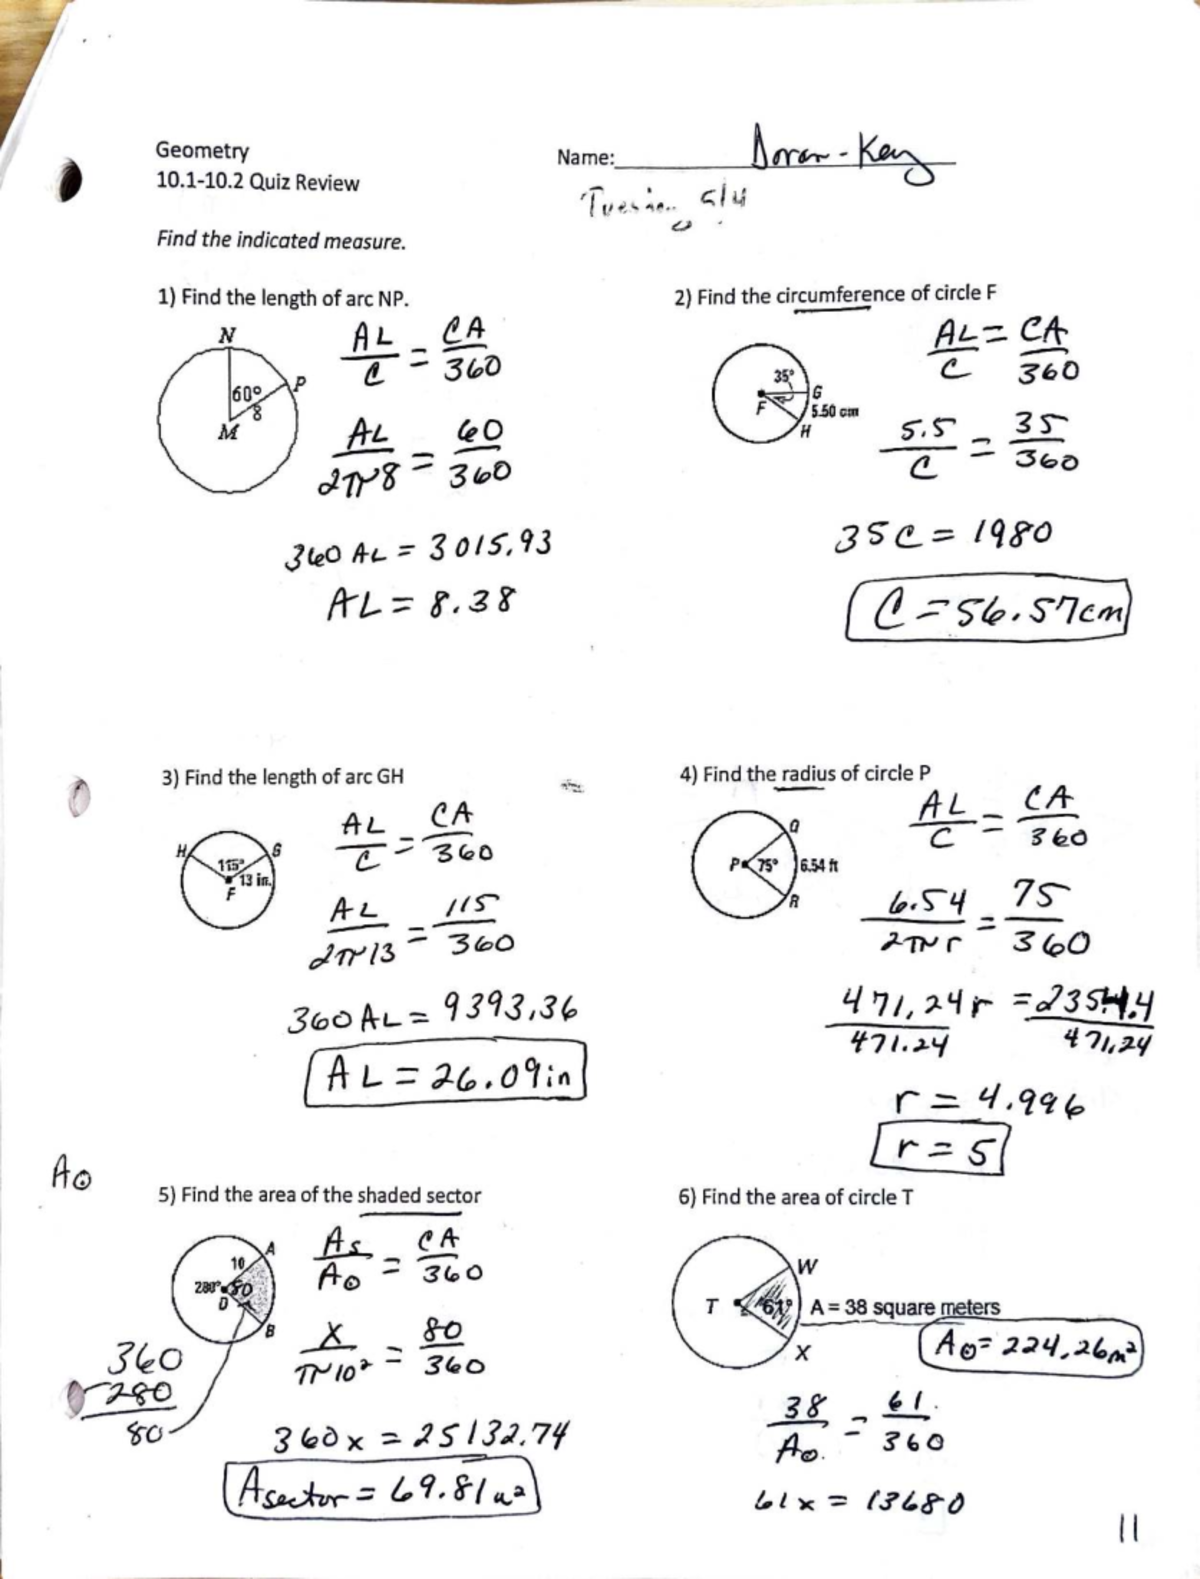 Geometry
Name: Doran-Key
10.1-10.2 Quiz Review
5/4
Find the indicated measure.
1) Find the length of arc NP.
N
P
60°
8
M
AL/C = CA/360
AL/2π8 = 60/360
360 AL = 3015.93
AL = 8.38
2) Find the circumference of circle F
35°
F
G
5.50 cm
H
AL/C = CA/360
5.5/C = 35/360
35C = 1980
C = 56.57cm
3) Find the length of arc GH
H
G
115°
13 in.
F
AL/C = CA/360
AL/2π13 = 115/360
360 AL = 9393.36
AL = 26.09in
4) Find the radius of circle P
Q
P
75°
6.54 ft
R
AL/C = CA/360
6.54/2πr = 75/360
471.24r/471.24 = 2354.4/471.24
r = 4.996
r = 5
A⊙
5) Find the area of the shaded sector
A
10
280°
80
D
B
360
- 280
80
As/A⊙ = CA/360
X/π10² = 80/360
360x = 25132.74
Asector = 69.81u²
6) Find the area of circle T
W
T
61°
A = 38 square meters
X
A⊙ = 224.26m²
38/A⊙ = 61/360
61x = 13680
11